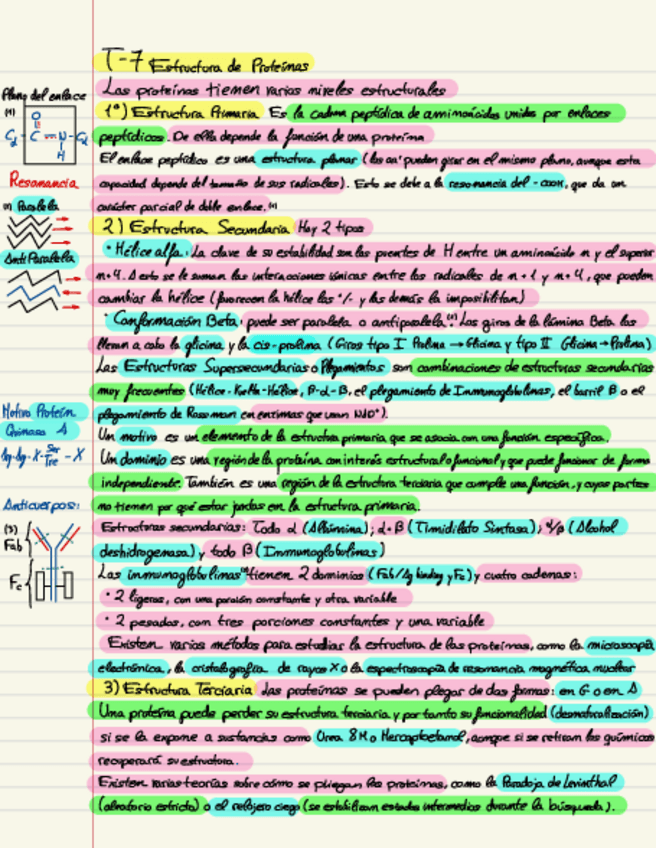 T-7 Estructura de Proteínas
Las proteínas tienen varios niveles estructurales
1º) Estructura Primaria Es la cadena peptídica de aminoácidos unidos por enlaces
peptídicos. De ella depende la función de una proteína
El enlace peptídico es una estructura planar (los aa' pueden girar en el mismo plano, aunque esta
capacidad depende del tamaño de sus radicales). Esto se debe a la resonancia del -COOH, que da un
carácter parcial de doble enlace.(1)
2) Estructura Secundaria Hay 2 tipos
· Hélice alfa. La clave de su estabilidad son los puentes de H entre un aminoácido n y el superior
n+4. A esto se le suman las interacciones iónicas entre los radicales de n+1 y n+4, que pueden
cambiar la hélice (favorecen la hélice las +/- y las demás la imposibilitan)
· Conformación Beta, puede ser paralela o antiparalela. Los giros de la lámina Beta los
llevan a cabo la glicina, y la cis-prolina (Giros tipo I Prolina → Glicina y tipo II Glicina → Prolina)
Las Estructuras Supersecundarias o Plegamientos son combinaciones de estructuras secundarias
muy frecuentes (Hélice-Kohlh-Hélice, β-α-β, el plegamiento de Inmunoglobulinas, el barril β o el
plegamiento de Rossman en enzimas que usan NAD⁺).
Un motivo es un elemento de la estructura primaria que se asocia con una función específica.
Un dominio es una región de la proteína con interés estructural o funcional y que puede funcionar de forma
independiente. También es una región de la estructura terciaria que cumple una función, y cuyas partes
no tienen por qué estar juntas en la estructura primaria.
Estructuras secundarias: Todo α (Albúmina); α+β (Timidilato Sintasa); α/β (Alcohol
deshidrogenasa) y todo β (Inmunoglobulinas)
Las inmunoglobulinas tienen 2 dominios (Fab/Ag binding y Fc) y cuatro cadenas:
· 2 ligeras, con una porción constante y otra variable
· 2 pesadas, con tres porciones constantes y una variable
Existen varios métodos para estudiar la estructura de las proteínas, como la microscopía
electrónica, la cristalografía de rayos X o la espectroscopía de resonancia magnética nuclear
3) Estructura Terciaria Las proteínas se pueden plegar de dos formas: en G o en A
Una proteína puede perder su estructura terciaria y por tanto su funcionalidad (desnaturalización)
si se la expone a sustancias como Urea 8M o Mercaptoetanol, aunque si se retiran los químicos
recuperará su estructura.
Existen varias teorías sobre cómo se pliegan las proteínas, como la Paradoja de Levinthal
(aleatorio estricto) o el relojero ciego (se estabilizan estados intermedios durante la búsqueda).
Plano del enlace
(1)
O
Cα - C - N - Cα
H
Resonancia
(2) Paralela
AntiParalela
Motivo Proteín
Quinasa A
Arg-Arg-X-Ser/Tre-X
Anticuerpos:
(3)
Fab
Fc